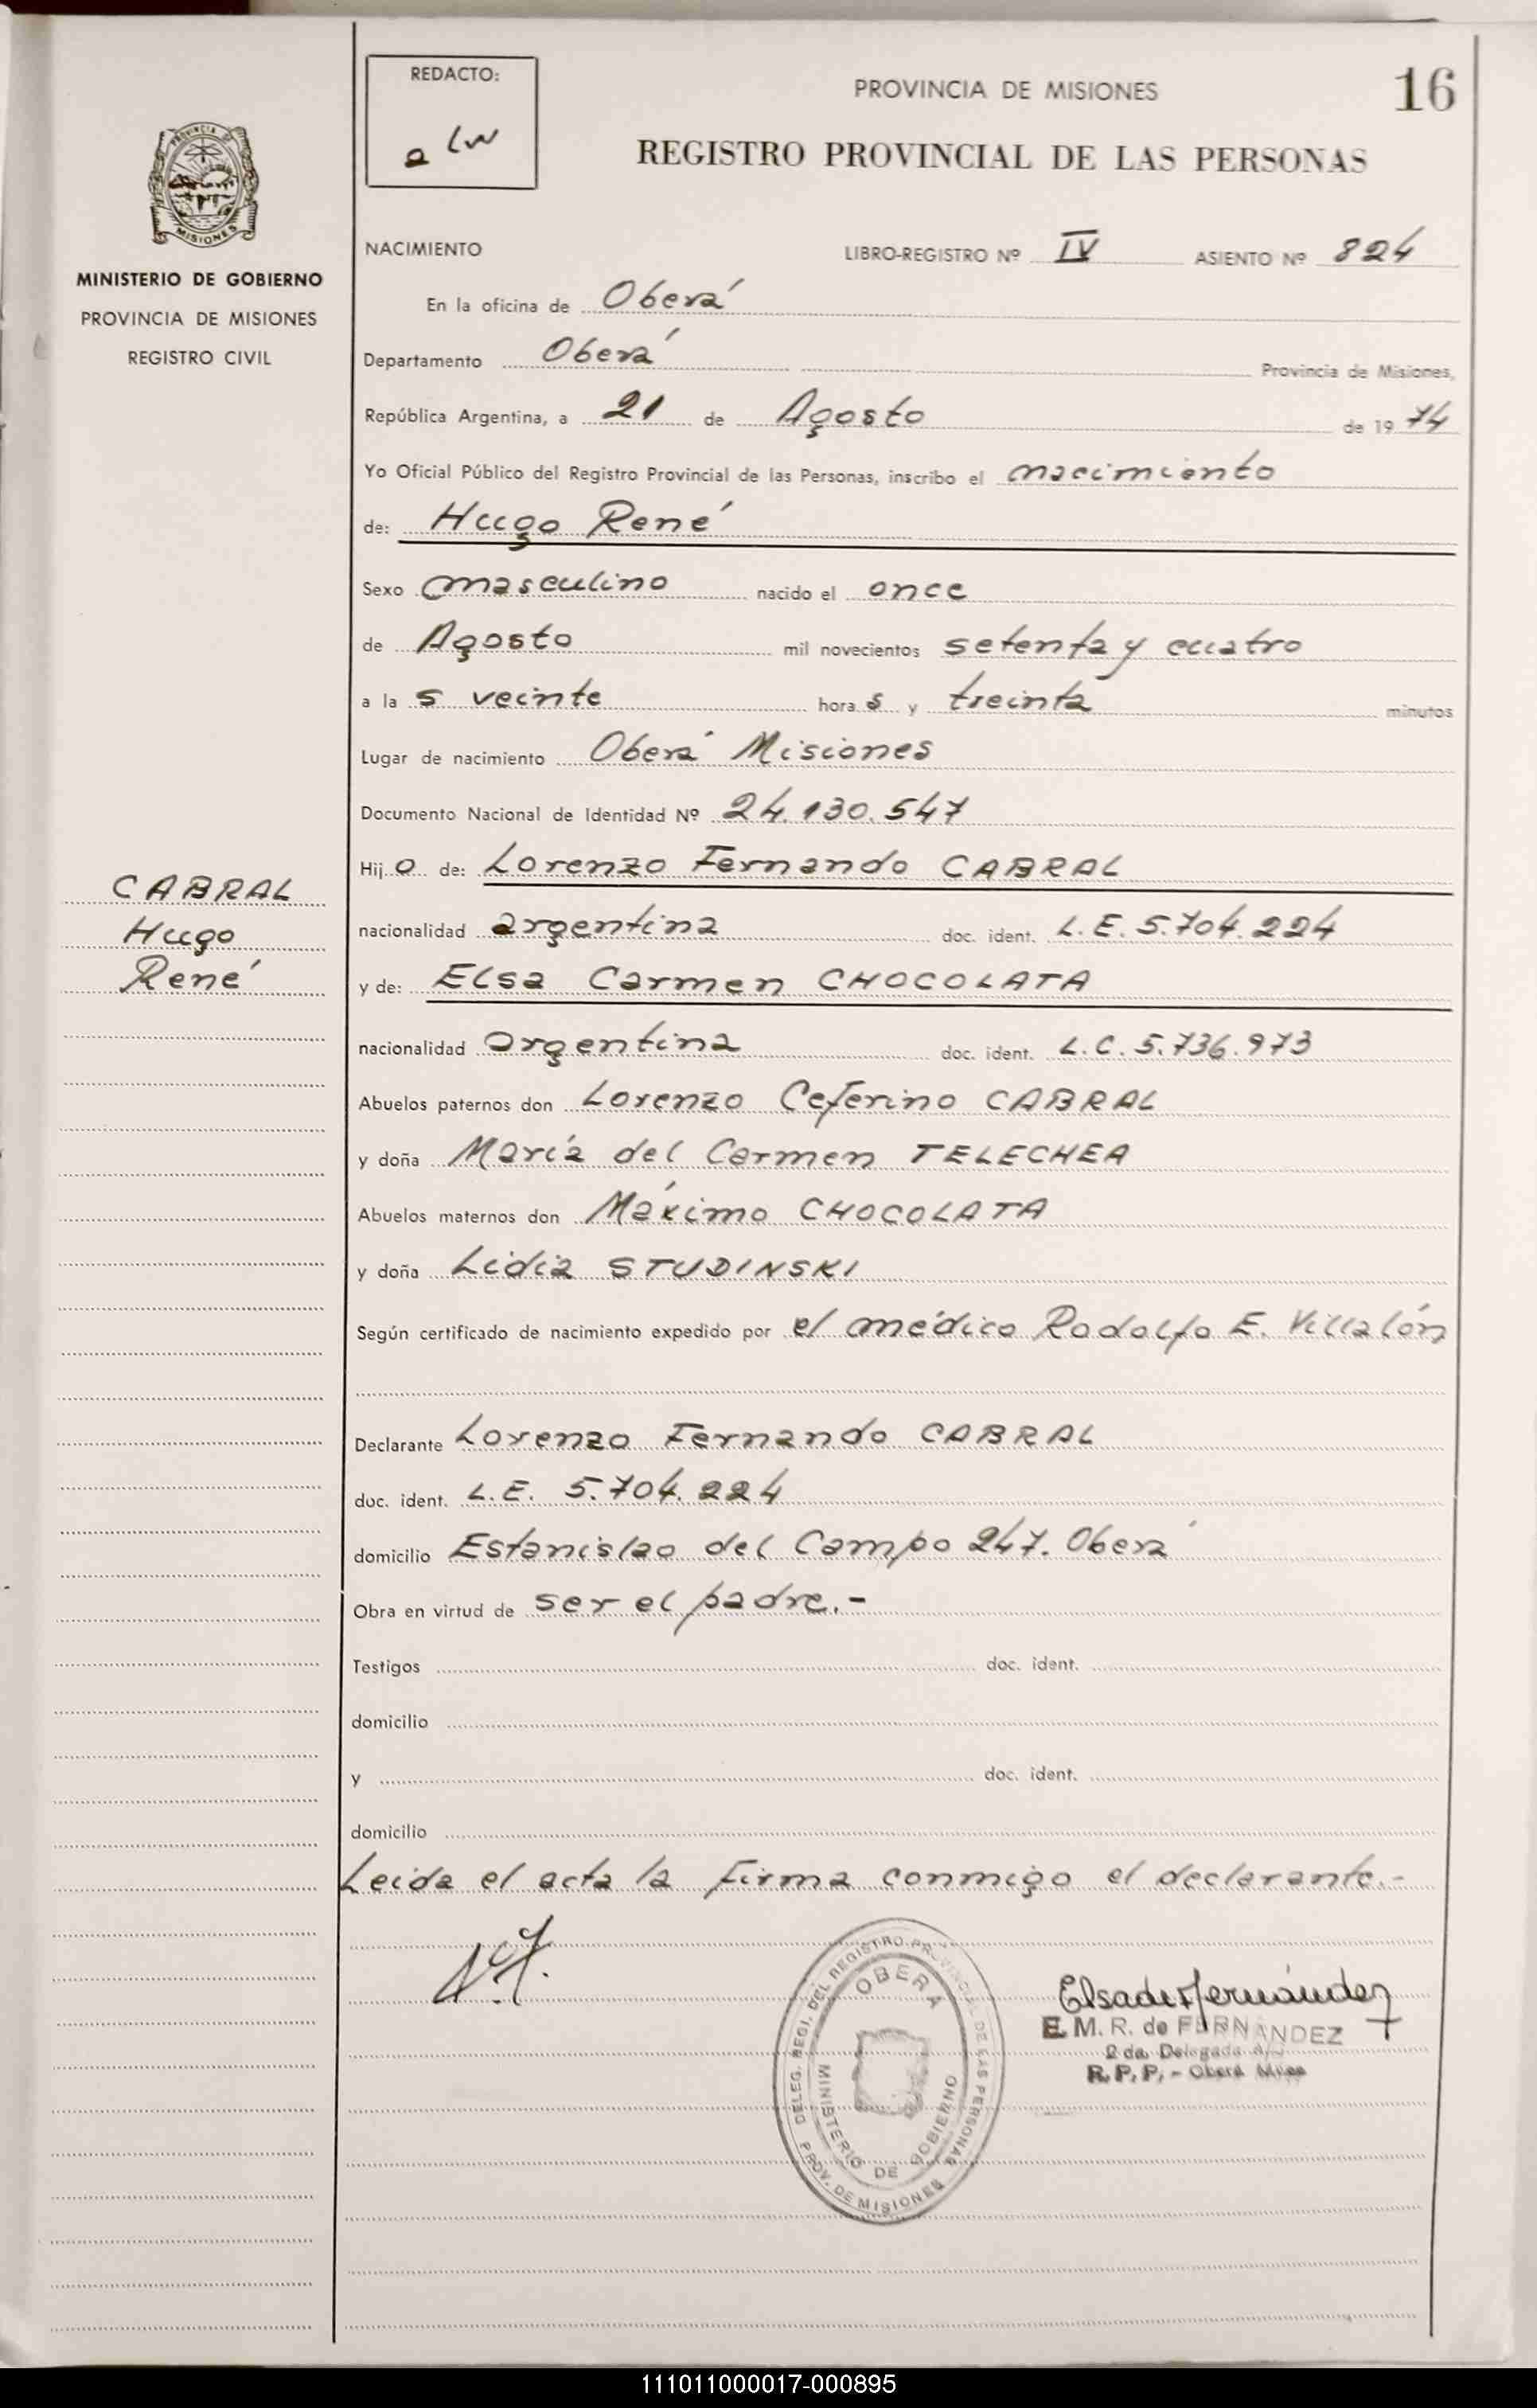 REDACTO:
PROVINCIA DE MISIONES
16
REGISTRO PROVINCIAL DE LAS PERSONAS
PROVINCIA DE
MISIONES
MINISTERIO DE GOBIERNO
PROVINCIA DE MISIONES
REGISTRO CIVIL
NACIMIENTO LIBRO-REGISTRO Nº IV ASIENTO Nº 824
En la oficina de Oberá
Departamento Oberá Provincia de Misiones,
República Argentina, a 21 de Agosto de 19 74
Yo Oficial Público del Registro Provincial de las Personas, inscribo el nacimiento
de: Hugo René
Sexo masculino nacido el once
de Agosto mil novecientos setenta y cuatro
a la s veinte hora s y treinta minutos
Lugar de nacimiento Oberá Misiones
Documento Nacional de Identidad Nº 24.130.547
Hij o de: Lorenzo Fernando CABRAL
CABRAL
Hugo
René
nacionalidad argentina doc. ident. L.E. 5.704.224
y de: Elsa Carmen CHOCOLATA
nacionalidad Argentina doc. ident. L.C. 5.736.973
Abuelos paternos don Lorenzo Ceferino CABRAL
y doña María del Carmen TELECHEA
Abuelos maternos don Máximo CHOCOLATA
y doña Lidia STUDINSKI
Según certificado de nacimiento expedido por el médico Rodolfo E. Villalón
Declarante Lorenzo Fernando CABRAL
doc. ident. L.E. 5.704.224
domicilio Estanislao del Campo 247. Oberá
Obra en virtud de ser el padre.-
Testigos doc. ident.
domicilio
y doc. ident.
domicilio
Leida el acta la firma conmigo el declarante.-
DELEG. REGI. DEL REGISTRO PROVINCIAL DE LAS PERSONAS
OBERA
MINISTERIO DE GOBIERNO
PROV. DE MISIONES
Elsa de Fernández
E. M. R. de FERNANDEZ
2 da. Delegada
R. P. P. - Oberá Mnes
111011000017-000895